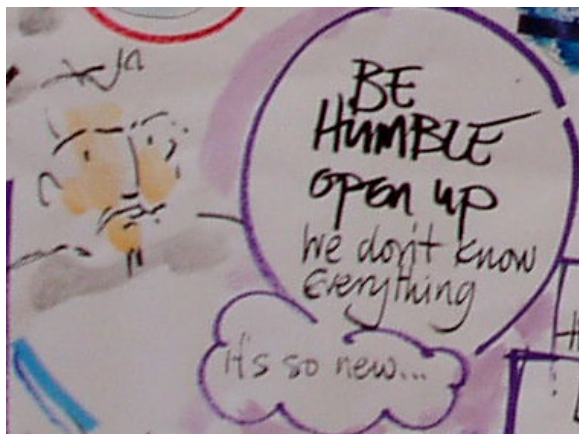 BE
HUMBLE
open up
We don't know
Everything
it's so new...